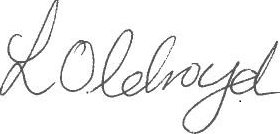 L Oldroyd